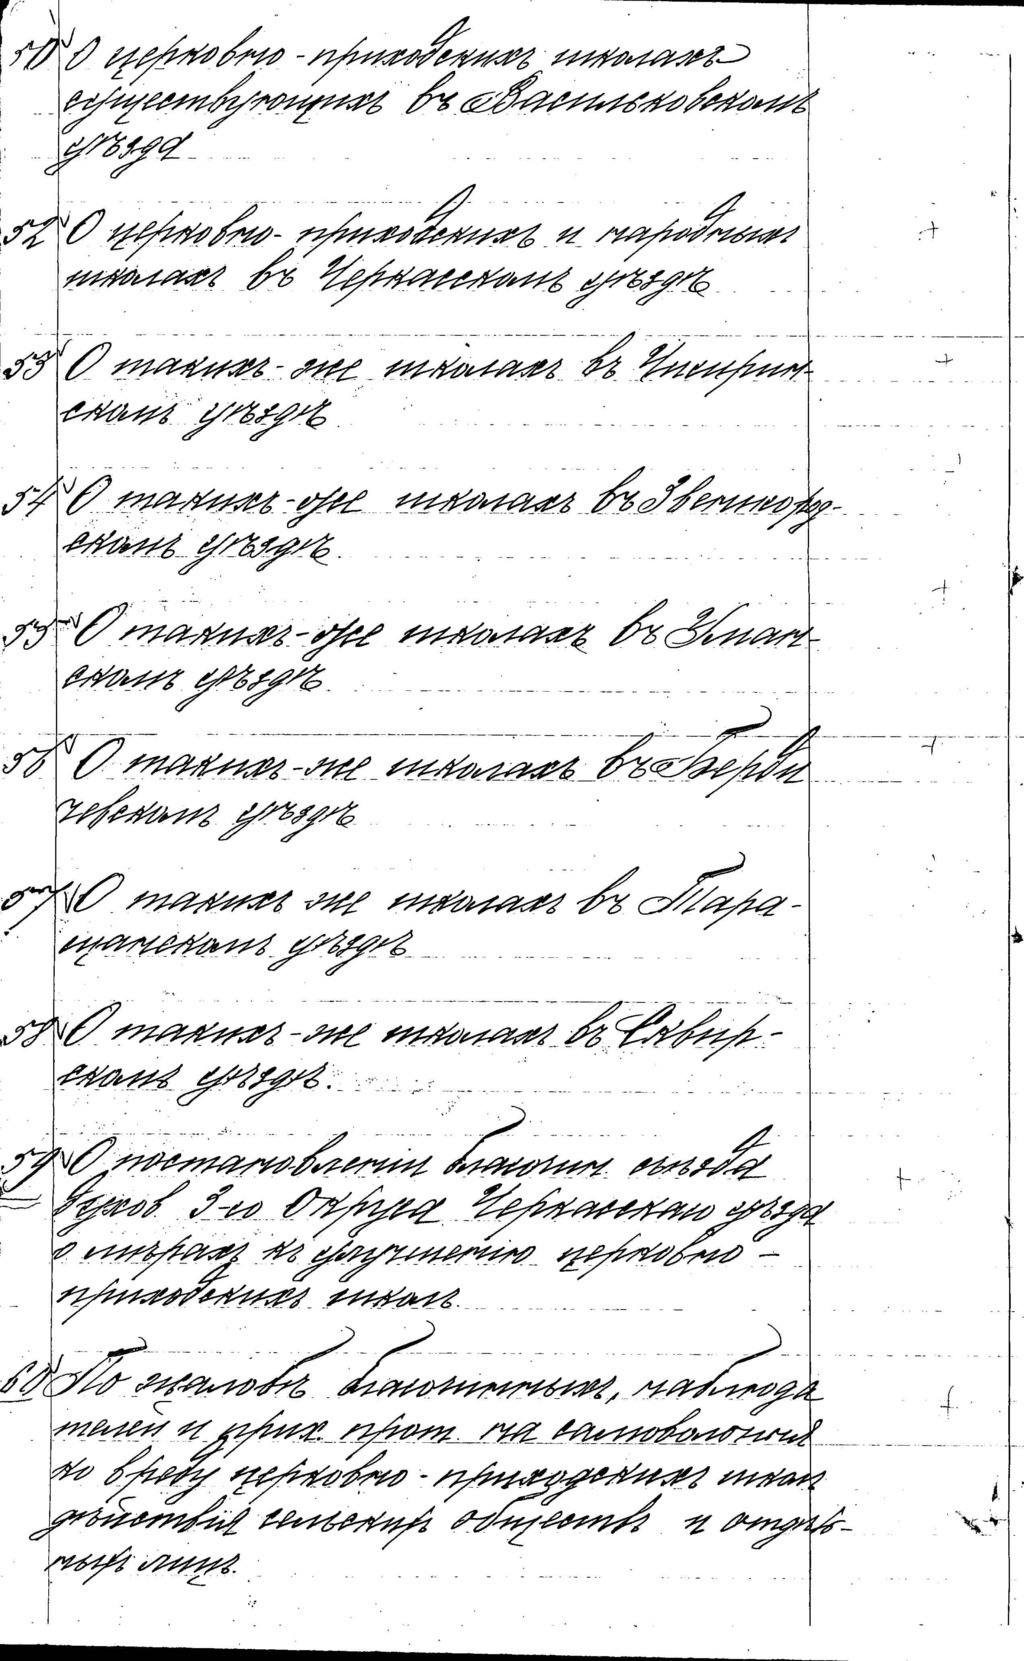 50 О церковно-приходскихъ школахъ
существующихъ въ Васильковскомъ
уѣзда
52 О церковно-приходскихъ и народныхъ
школахъ въ Черкасскомъ уѣздѣ
53 О такихъ-же школахъ въ Чигирин-
скомъ уѣздѣ
54 О такихъ-же школахъ въ Звенигород-
скомъ уѣздѣ.
55 О такихъ-же школахъ въ Уман-
скомъ уѣздѣ.
56 О такихъ-же школахъ въ Берди
чевскомъ уѣздѣ
57 О такихъ же школахъ въ Тара-
щанскомъ уѣздѣ
58 О такихъ-же школахъ въ Сквир-
скомъ уѣздѣ.
59 О постановленіи благочин. съѣзда
духов. 3-го Округа Черкасскаго уѣзда
о мѣрахъ къ улучшенію церковно-
приходскихъ школъ.
60 По жалобѣ благочинныхъ, наблюда
телей и прих. прот. на самовольныя
ко вреду церковно-приходскихъ школ
дѣйствія сельскихъ обществъ и отдѣль-
ныхъ лицъ.